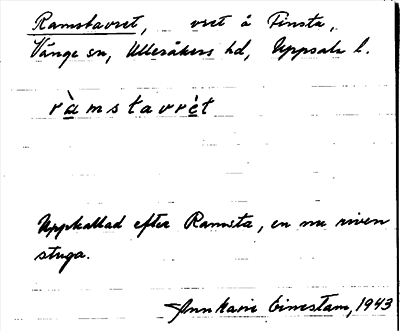 Ramstavret, vret å Finsta,
Vänge sn, Ulleråkers hd, Uppsala l.
ràmstavrèt
Uppkallad efter Ramsta, en nu riven
stuga.
Ann Marie Einestam, 1943